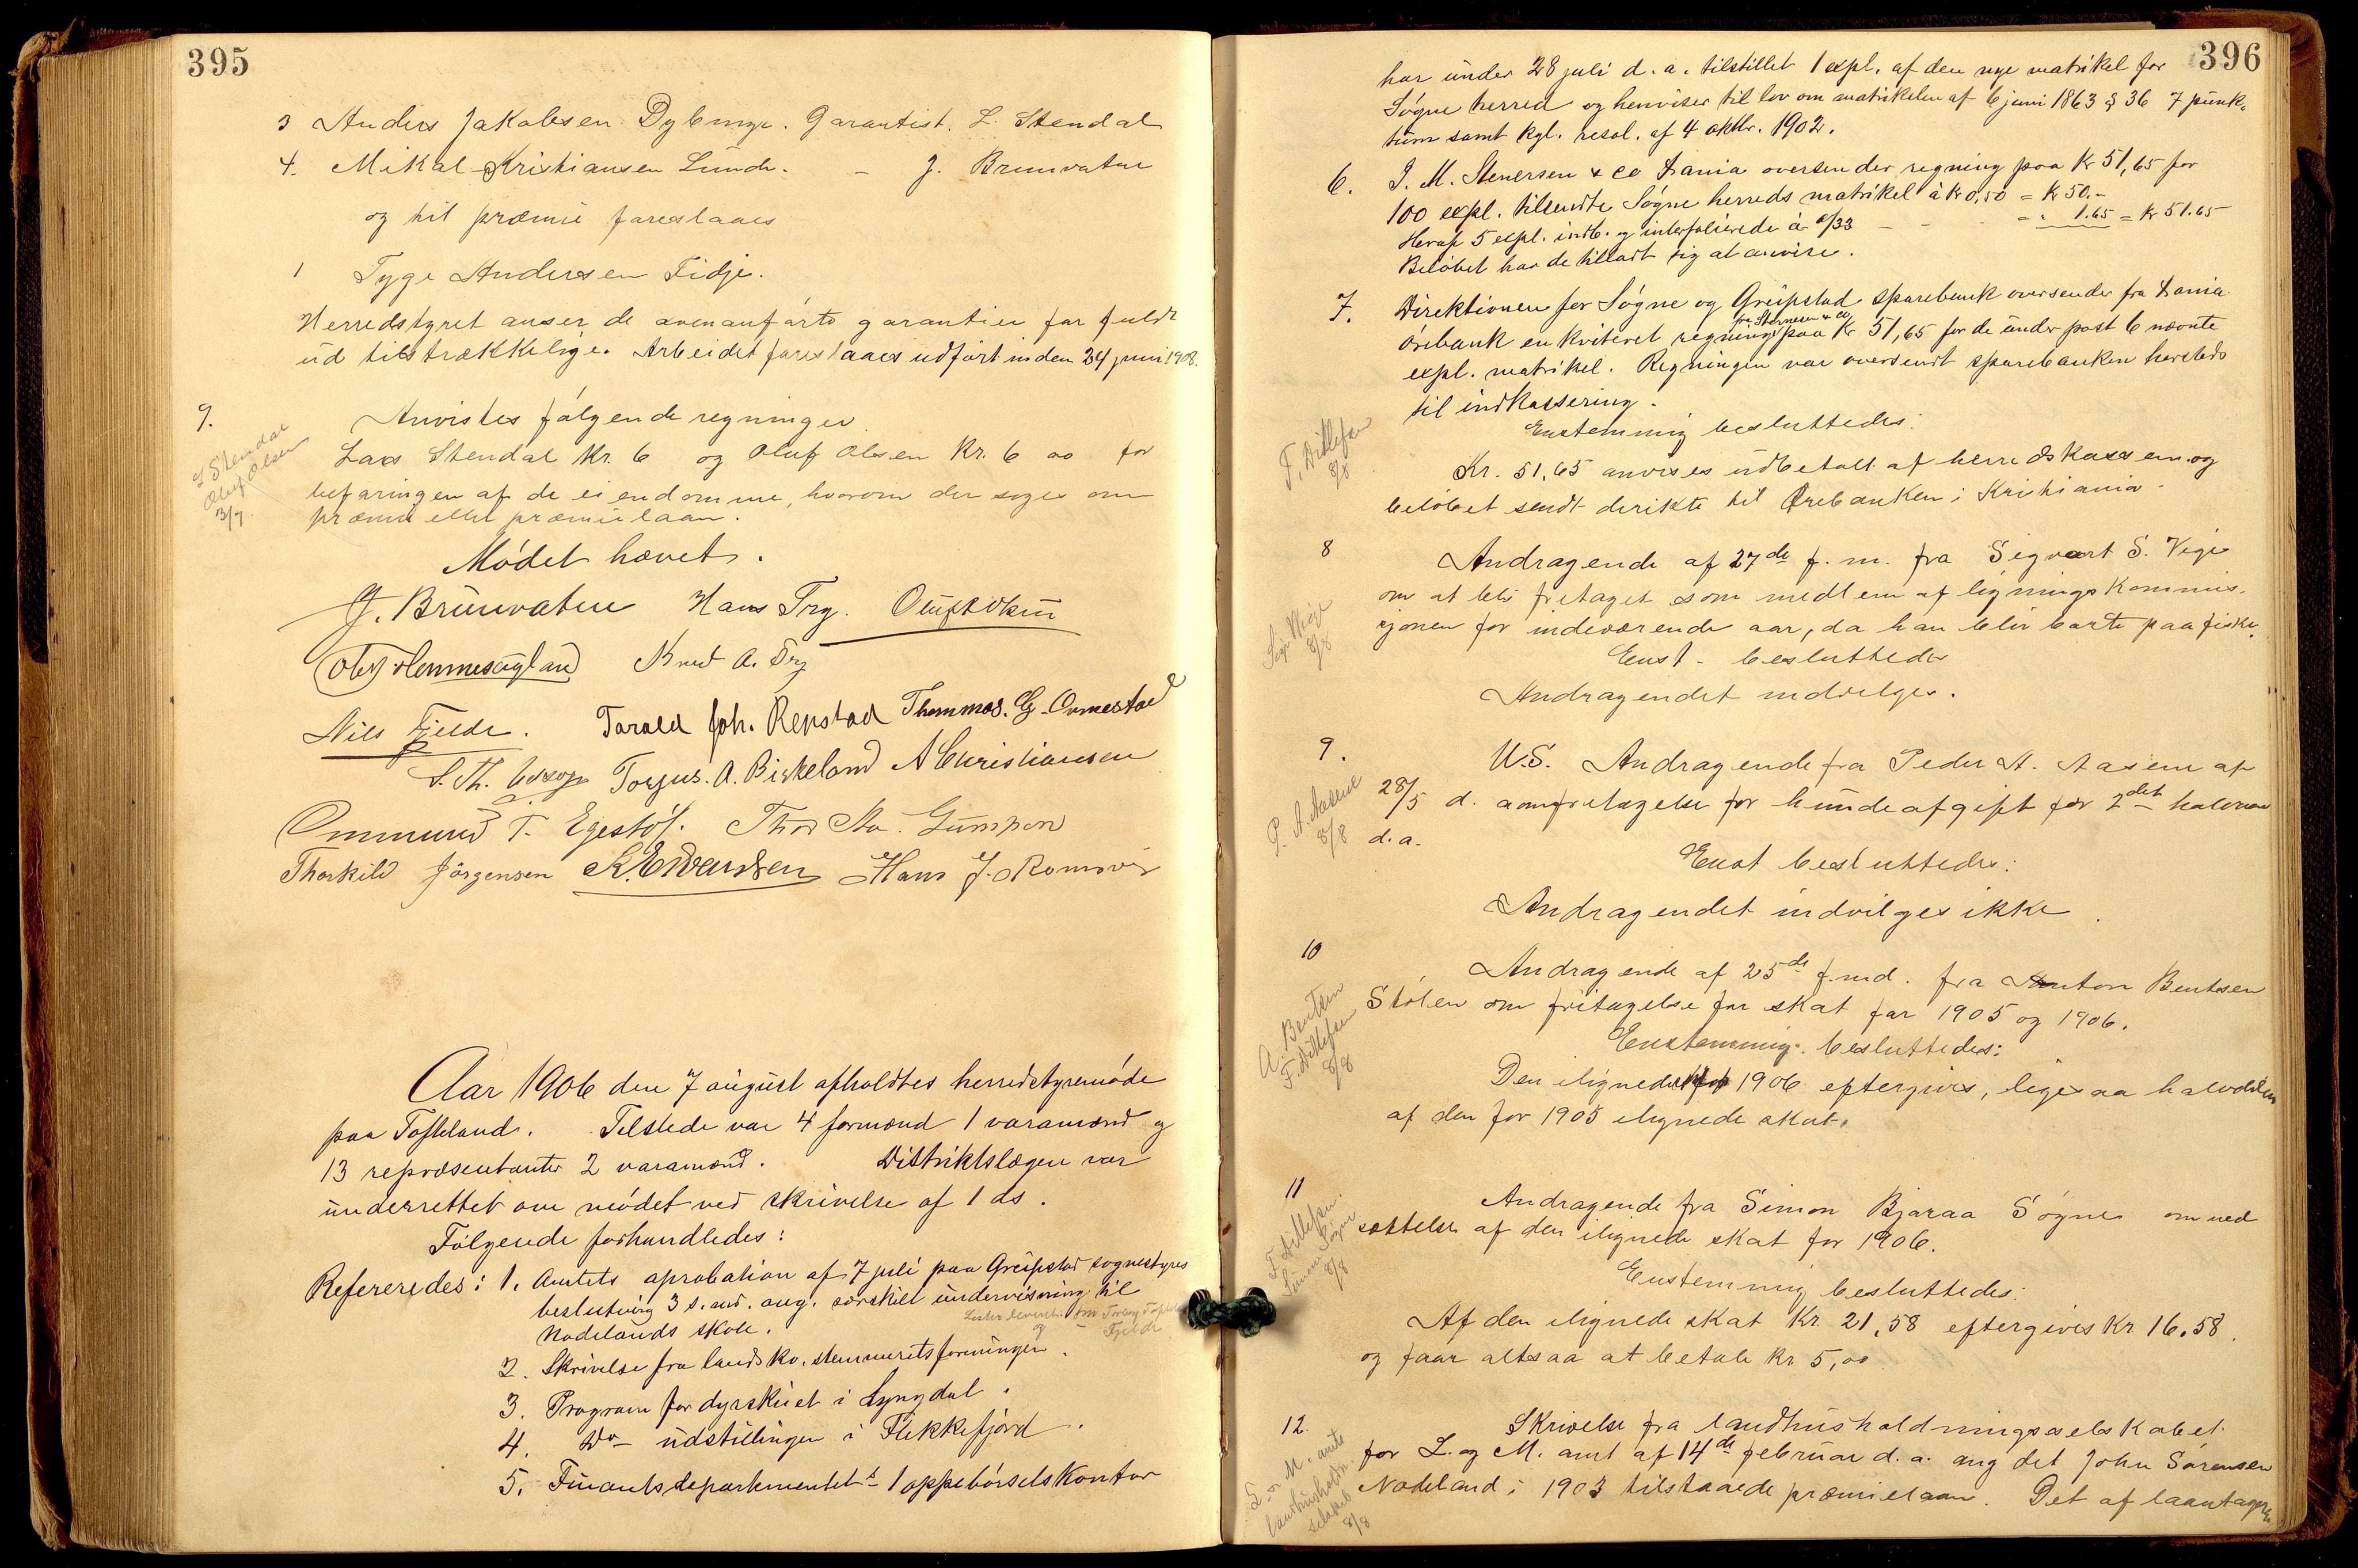 395
3 Anders Jakobsen Dybinge. Garantist. L. Stendal
4. Mikal Kristiansen Lunde. - J. Brunvatne
og til præmie foreslaaes
1 Tyge Andersen Fidje.
Herredstyret anser de ovenanførte garantier for fuldt
ud tilstrækkelige. Arbeidet foreslaaes udført inden 24 juni 1908.
9. Anvistes følgende regninger
L Stendal
Oluf Olsen
3/7
Lars Stendal Kr. 6 og Oluf Olsen Kr. 6 00 for
befaringen af de eiendomme, hvorom der søges om
præmie eller præmielaan.
Mødet hævet.
J. Brunvatne Hans Try.
Knut A. Try
Nils Fjelde. Torald Joh. Repstad Thommas. G. Ormestad
S. Th. Torjus. A. Birkeland A Christiansen
Ommund T. Egestøl. Thor
Thorkild Jørgensen Hans J.
Aar 1906 den 7 august afholdtes herredstyremøde
paa Tofteland. Tilstede var 4 formænd 1 varamænd og
13 repræsentanter 2 varamænd. Distriktslægen var
underrettet om mødet ved skrivelse af 1 ds.
Følgende forhandledes:
Refereredes: 1. Amtets aprobation af 7 juli paa Greipstad sognestyres
beslutning 3 s. md. ang. særskilt undervisning til
Nodelands skole.
2. Skrivelse fra landskv. stemmeretsforeningen.
3. Program for dyrskuet i Lyngdal.
4. Do - udstillingen i Flekkefjord.
5. Finantsdepartementets 1 oppebørselskontor
396
har under 28 juli d. a. tilstillet 1 expl. af den nye matrikel for
Søgne herred og henviser til lov om matrikelen af 6 juni 1863 § 36 7 punk-
tum samt kgl. resol. af 4 oktbr. 1902.
6. J. M. Stenersen & co Xania oversender regning paa Kr 51,65 for
100 expl. tilsendte Søgne herreds matrikel à Kr 0,50 = Kr 50.-
Heraf 5 expl. indb. og interfolierede à 0/33 - - - 1.65 = Kr 51.65
Beløbet har de tilladt sig at anvise.
7. Direktionen for Søgne og Greipstad sparebank oversender fra Xania
fra Stenersen & co
ørebank en kviteret regning paa Kr 51,65 for de under post 6 nævnte
expl. matrikel. Regningen var oversendt sparebanken hersteds
til indkassering.
F. Ditlefsen
8/8
Enstemmig besluttedes:
Kr. 51,65 anvises udbetalt af herredskassen og
beløbet sendt direkte til Ørebanken i Kristiania.
8 Andragende af 27de f. m. fra Sigvart S. Vige
Sigv Vige
8/8
om at bli fritaget som medlem af ligningskommis-
sjonen for indeværende aar, da han blir borte paa fiske.
Enst. besluttedes
Andragendet indvilges.
9. U.S. Andragende fra Peder A. Aasene af
P. A. Aasene
8/8
28/5 d. a om fritagelse for hundeafgift for 2det halvaar
d. a.
Enst besluttedes:
Andragendet indvilges ikke.
10 Andragende af 25de f. md. fra Anton Bentsen
A. Bentsen
F. Ditlefsen
8/8
Stølen om fritagelse for skat for 1905 og 1906.
Enstemmig besluttedes:
Den ilignede for 1906 eftergives, ligesaa halvdelen
af den for 1905 ilignede skat.
11 Andragende fra Simon Bjaraa Søgne om ned
F. Ditlefsen.
Simon Søgne
8/8
sættelse af den ilignede skat for 1906.
Enstemmig besluttedes:
Af den ilignede skat Kr. 21,58 eftergives Kr 16.58.
og faar altsaa at betale Kr 5,00.
12. Skrivelse fra landhusholdningsselskabet
L. og M. amts
landhusholdn.
selskab
8/8
for L. og M. amt af 14de februar d. a. ang det John Sørensen
Nodeland i 1903 tilstaaede præmielaan. Det af laantageren